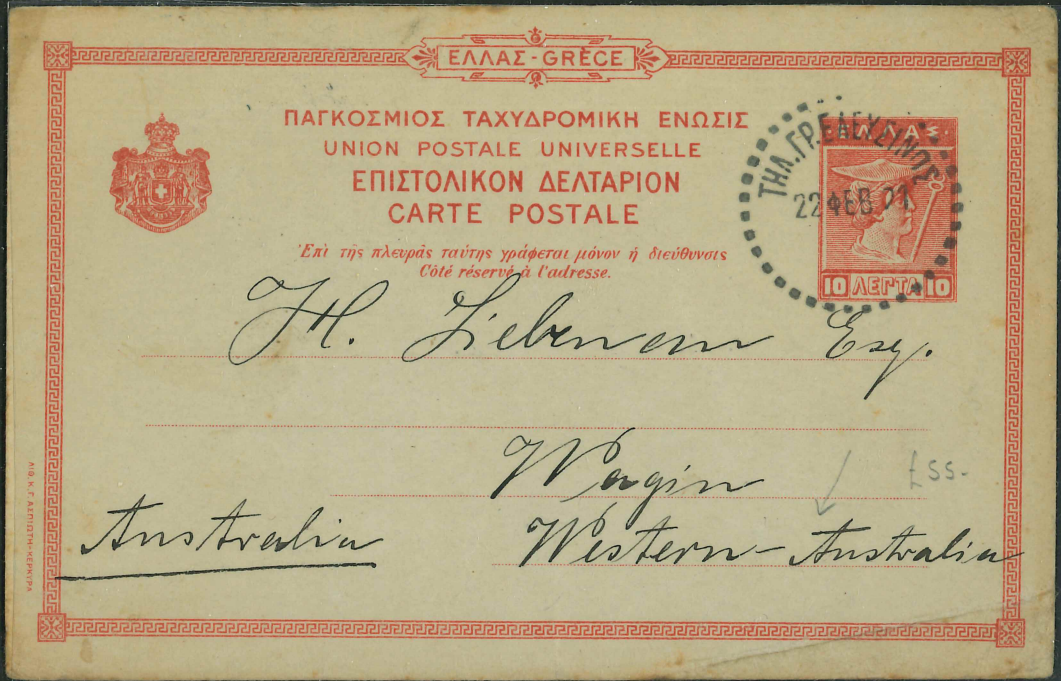 ΕΛΛΑΣ-GRÈCE
ΠΑΓΚΟΣΜΙΟΣ ΤΑΧΥΔΡΟΜΙΚΗ ΕΝΩΣΙΣ
UNION POSTALE UNIVERSELLE
ΕΠΙΣΤΟΛΙΚΟΝ ΔΕΛΤΑΡΙΟΝ
CARTE POSTALE
Ἐπὶ τῆς πλευρᾶς ταύτης γράφεται μόνον ἡ διεύθυνσις
Côté réservé à l'adresse.
ΕΛΛΑΣ
ΤΗΛ.ΓΡ.ΕΛΕΥΣΙΝΟΣ
22 ΦΕΒ 21
10 ΛΕΠΤΑ 10
H. Liebmann Esq.
Wagin
£55-
Australia
Western-Australia
ΛΙΘ. Κ. Γ. ΑΣΠΙΩΤΗ-ΚΕΡΚΥΡΑ